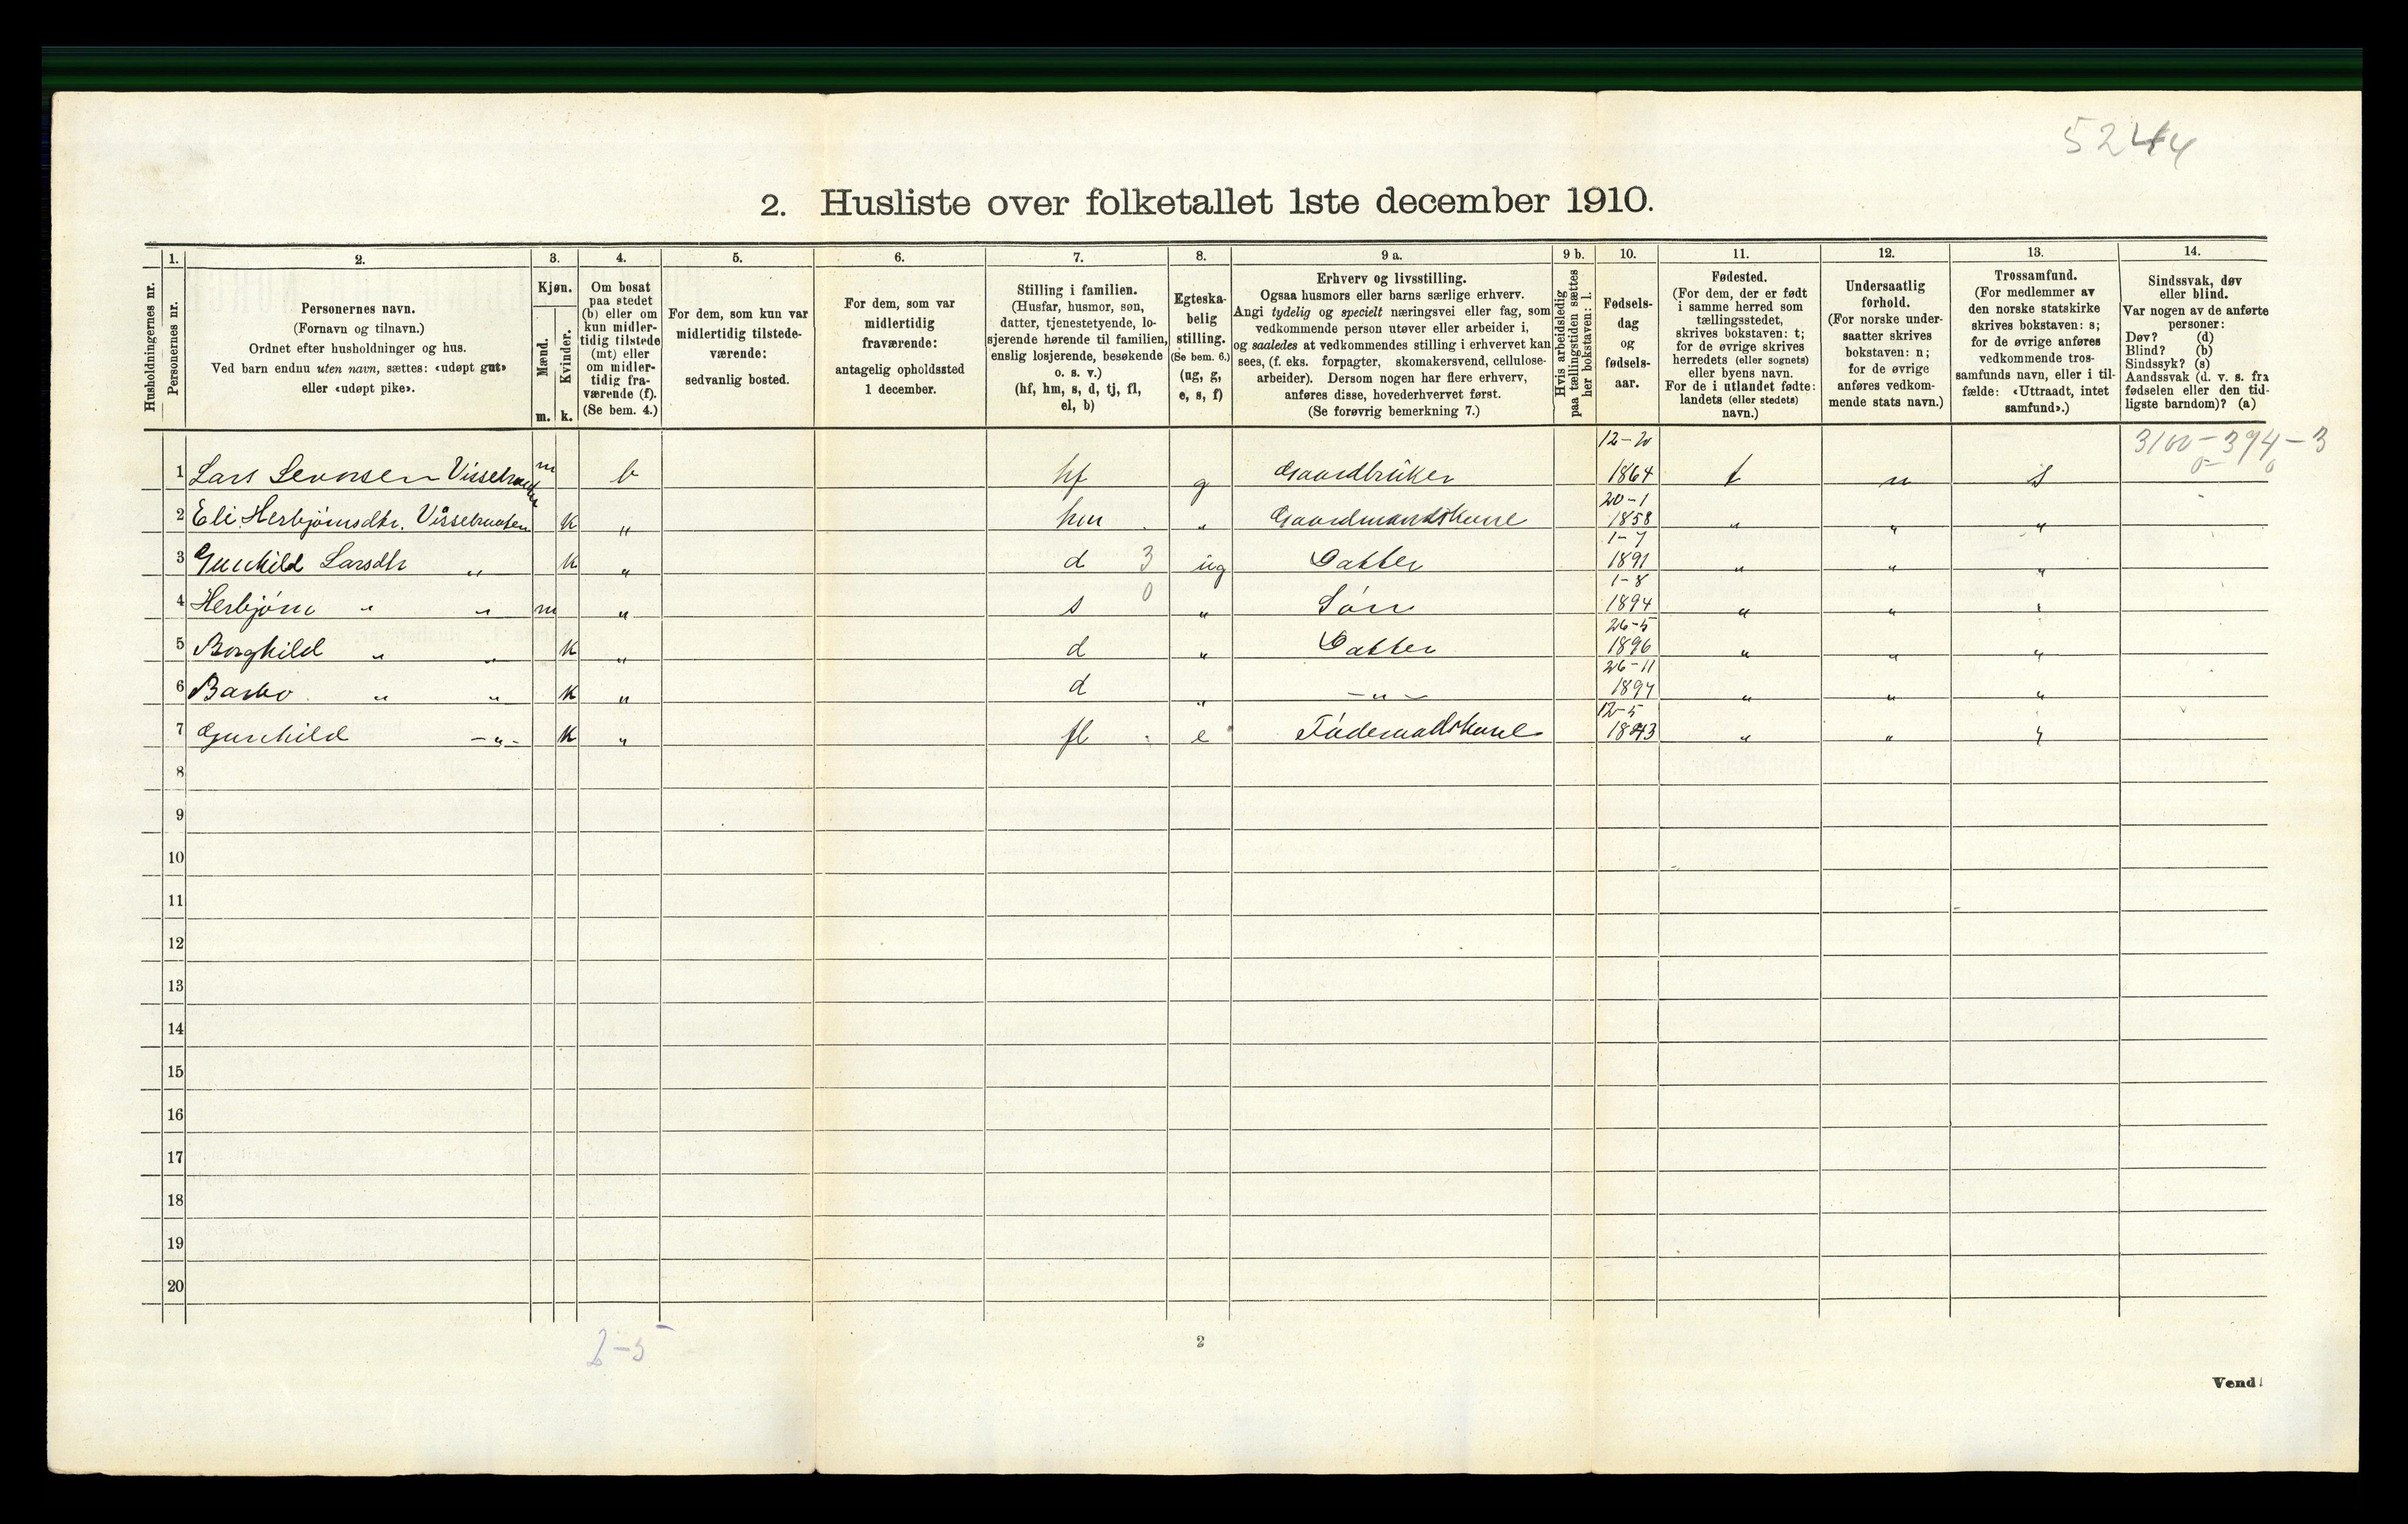 5244
2. Husliste over folketallet 1ste december 1910.
Husholdningernes nr.
1. Personernes nr.
2. Personernes navn.
(Fornavn og tilnavn.)
Ordnet efter husholdninger og hus.
Ved barn endnu uten navn, sættes: «udøpt gut»
eller «udøpt pike».
3. Kjøn.
Mænd. m.
Kvinder. k.
4. Om bosat
paa stedet
(b) eller om
kun midler-
tidig tilstede
(mt) eller
om midler-
tidig fra-
værende (f).
(Se bem. 4.)
5. For dem, som kun var
midlertidig tilstede-
værende:
sedvanlig bosted.
6. For dem, som var
midlertidig
fraværende:
antagelig opholdssted
1 december.
7. Stilling i familien.
(Husfar, husmor, søn,
datter, tjenestetyende, lo-
sjerende hørende til familien,
enslig losjerende, besøkende
o. s. v.)
(hf, hm, s, d, tj, fl,
el, b)
8. Egteska-
belig
stilling.
(Se bem. 6.)
(ug, g,
e, s, f)
9 a. Erhverv og livsstilling.
Ogsaa husmors eller barns særlige erhverv.
Angi tydelig og specielt næringsvei eller fag, som
vedkommende person utøver eller arbeider i,
og saaledes at vedkommendes stilling i erhvervet kan
sees, (f. eks. forpagter, skomakersvend, cellulose-
arbeider). Dersom nogen har flere erhverv,
anføres disse, hovederhvervet først.
(Se forøvrig bemerkning 7.)
9 b. Hvis arbeidsledig
paa tællingstiden sættes
her bokstaven: l.
10. Fødsels-
dag
og
fødsels-
aar.
11. Fødested.
(For dem, der er født
i samme herred som
tællingsstedet,
skrives bokstaven: t;
for de øvrige skrives
herredets (eller sognets)
eller byens navn.
For de i utlandet fødte:
landets (eller stedets)
navn.)
12. Undersaatlig
forhold.
(For norske under-
saatter skrives
bokstaven: n;
for de øvrige
anføres vedkom-
mende stats navn.)
13. Trossamfund.
(For medlemmer av
den norske statskirke
skrives bokstaven: s;
for de øvrige anføres
vedkommende tros-
samfunds navn, eller i til-
fælde: «Uttraadt, intet
samfund».)
14. Sindssvak, døv
eller blind.
Var nogen av de anførte
personer:
Døv? (d)
Blind? (b)
Sindssyk? (s)
Aandssvak (d. v. s. fra
fødselen eller den tid-
ligste barndom)? (a)
3100-394-3
0 0
1 Lars Sevorsen m b hf g Gaardbruker 12-2 1864 t n s
2 Eli Herbjørnsdtr. Visselraaten k „ hm „ Gaardmandskone 20-1 1858 „ „ „
3 Gunhild Larsdtr „ k „ d 3 ug Datter 1-7 1891 „ „ „
4 Herbjørn „ „ m „ s 0 „ Søn 1-8 1894 „ „ „
5 Borghild „ „ k „ d „ Datter 26-5 1896 „ „ „
6 Barbo „ „ k „ d „ -„- 26-11 1897 „ „ „
7 Gunhild -„- k „ fl e Födemadskone 12-5 1843 „ „ „
8
9
10
11
12
13
14
15
16
17
18
19
20
2-5
2
Vend!